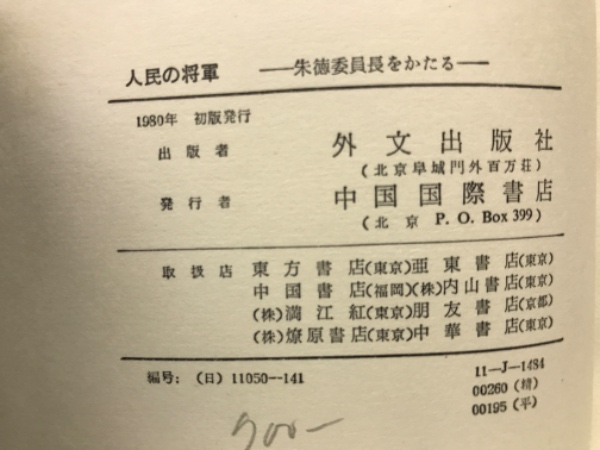 人民の将軍 ――朱徳委員長をかたる――
1980年 初版発行
出版者 外文出版社
(北京阜城門外百万荘)
発行者 中国国際書店
(北京 P. O. Box 399)
取扱店 東方書店(東京)亜東書店(東京)
中国書店(福岡)(株)内山書店(東京)
(株)満江紅(東京)朋友書店(京都)
(株)燎原書店(東京)中華書店(東京)
編号: (日) 11050—141
11—J—1484
00260 (精)
00195 (平)
700—